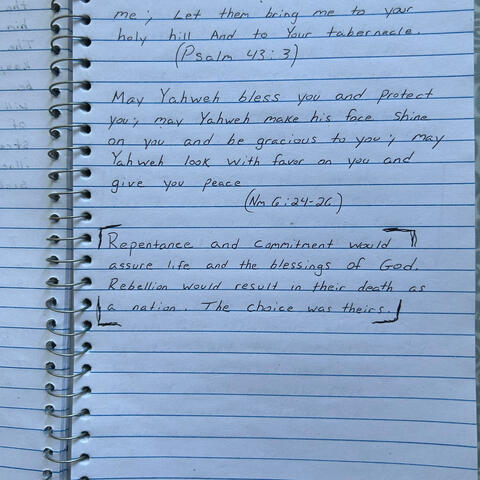 me; Let them bring me to your
holy hill And to Your tabernacle.
(Psalm 43:3)
May Yahweh bless you and protect
you; may Yahweh make his face shine
on you and be gracious to you; may
Yahweh look with favor on you and
give you peace
(Nm 6:24-26)
Repentance and commitment would
assure life and the blessings of God.
Rebellion would result in their death as
a nation. The choice was theirs.